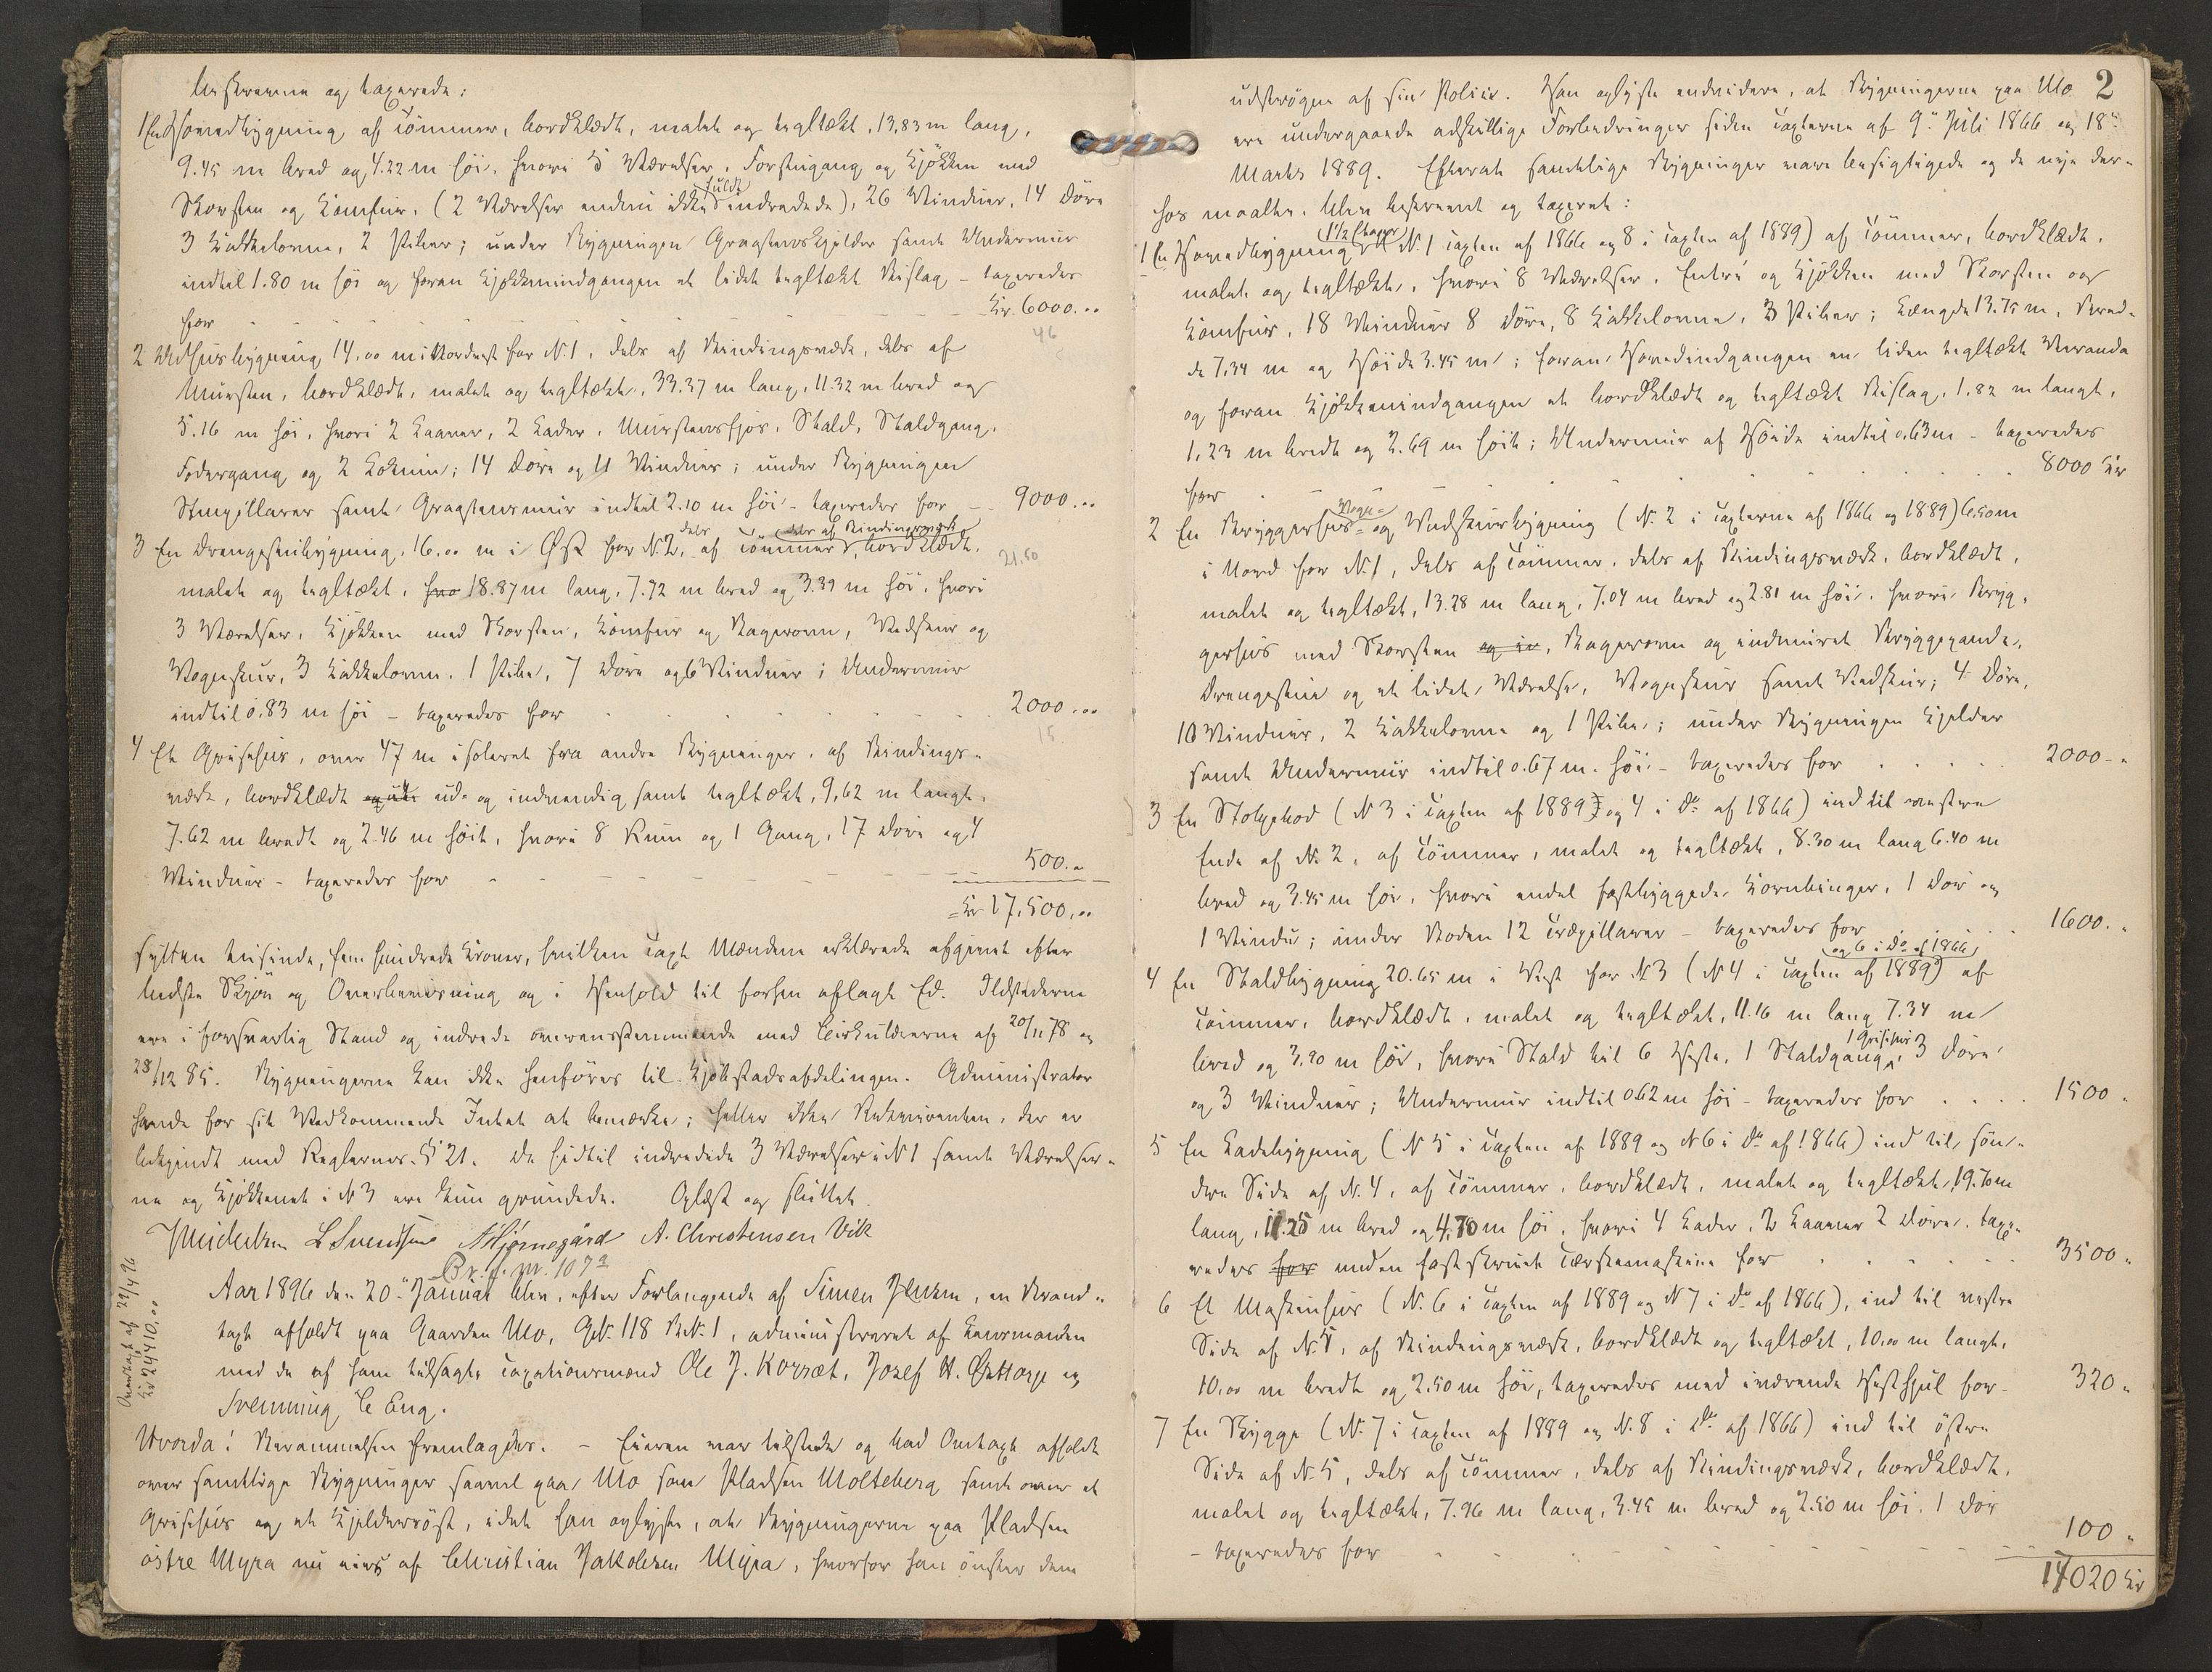 beskrevne og taxerede:
1 En Hovedbygning af Tömmer, bordklædt, malet og tegltækt, 13,83 m lang,
9.45 m bred og 4.22 m höi, hvori 5 Værelser, Forstugang og Kjökken med
Skorsten og Komfur, (2 Værelser endnu ikke fuldt indredede), 26 Vinduer, 14 Döre
3 Kakkelovne, 2 Piber; under Bygningen Graastenskjelder samt Undermur
indtil 1.80 m höi og foran Kjökkenindgangen et lidet tegltækt Bislag - taxeredes
for - - - - - Kr. 6000.00
46
2 Udhusbygning 14.00 m i Nordvest for N. 1, dels af Bindingsværk, dels af
Mursten, bordklædt, malet og tegltækt, 33.37 m lang, 11.32 m bred og
5.16 m höi, hvori 2 Laaver, 2 Lader, Murstensfjös, Stald, Staldgang,
Fodergang og 2 Lokrum; 14 Döre og 11 Vinduer; under Bygningen
Stenpillarer samt Graastensmur indtil 2.10 m höi - taxeredes for - - 9000.00
3 En Drengestubygning, 16.00 m i Øst for N. 2, dels af Tömmer, dels af Bindingsværk, bordklædt,
21.50
malet og tegltækt, hvo 18.87 m lang, 7.72 m bred og 3.39 m höi, hvori
3 Værelser, Kjökken med Skorsten, Komfur og Bagerovn, Vedskur og
Vognskur, 3 Kakkelovne, 1 Pibe, 7 Döre og 6 Vinduer; Undermur
indtil 0.83 m höi - taxeredes for . . . . 2000.00
15.
4 Et Grisehus, over 47 m isoleret fra andre Bygninger, af Bindings-
værk, bordklædt ud- og indvendig samt tegltækt, 9,62 m langt,
7.62 m bredt og 2.46 m höit, hvori 8 Rum og 1 Gang, 17 Döre og 4
Vinduer - taxeredes for - - - - 500.00
= Kr 17,500,00
sytten tusinde, fem hundrede Kroner, hvilken Taxt Mændene erklærede afgivet efter
bedste Skjön og Overbevisning og i Henhold til forhen aflagt Ed. Ildstederne
ere i forsvarlig Stand og indrede overensstemmende med Cirkulærerne af 20/11 78 og
28/12 85. Bygningerne kan ikke henföres til Kjöbstadsafdelingen. Administrator
havde for sit Vedkommende Intet at bemærke; heller ikke Rekvirenten, der er
bekjendt med Reglernes § 21. De hidtil indredede 3 Værelser i N 1 samt Værelser-
ne og Kjökkenet i N 3 ere kun grundede. Oplæst og sluttet.
L Svendsen A Hjörnegård A. Christensen Vik
Br. f. nr. 1073
Aar 1896 den 20de Januar blev, efter Forlangende af Simen Jensen, en Brand-
taxt afholdt paa Gaarden Mo, GN. 118 BN. 1, administreret af Lensmanden
med de af ham tilsagte Taxationsmænd Ole J. Korsæt, Josef H. Østtorp og
Svenning C Eng.
Omtaxt af 22/4 96
Kr 24410,00
Hvorda! Berammelsen fremlagdes. - Eieren var tilstede og bad Omtaxt afholdt
over samtlige Bygninger saavel paa Mo som Pladsen Molteberg samt over et
Grisehus og et Kjelderröst, idet han oplyste, at Bygningerne paa Pladsen
östre Myra nu eies af Christian Jakobsen Myra, hvorfor han önsker dem
2
udströgne af sin Police. Han oplyste endvidere, at Bygningerne paa Mo
ere undergaaede adskillige Forbedringer siden Taxterne af 9de Juli 1866 og 18de
Marts 1889. Efterat samtlige Bygninger vare besigtigede og de nye der-
hos maalte, blev beskrevet og taxeret:
1 En Hovedbygning 1 1/2 Etager (N. 1 Taxten af 1866 og 8 i Taxten af 1889) af Tömmer, bordklædt,
malet og tegltækt, hvori 8 Værelser, Entré og Kjökken med Skorsten og
Komfur, 18 Vinduer 8 Döre, 8 Kakkelovne, 3 Piber; Længde 13.75 m, Bred-
de 7,34 m og Höide 3.45 m; foran Hovedindgangen en liden tegltækt Veranda
og foran Kjökkenindgangen et bordklædt og tegltækt Bislag, 1.82 m langt,
1,23 m bredt og 2.69 m höit; Undermur af Höide indtil 0.63 m - taxeredes
for . . . . . 8000 Kr
2 En Bryggerhus- Vogn- og Vedskursbygning (N. 2 i Taxterne af 1866 og 1889) 6.50 m
i Nord for N. 1, dels af Tömmer, dels af Bindingsværk, bordklædt,
malet og tegltækt, 13.28 m lang, 7.04 m bred og 2.81 m höi, hvori Bryg-
gerhus med Skorsten og in, Bagerovn og indmuret Bryggepande,
Drengestue og et lidet Værelse, Vognskur samt Vedskur; 4 Döre,
10 Vinduer, 2 Kakkelovne og 1 Pibe; under Bygningen Kjelder
samt Undermur indtil 0.67 m. höi - taxeredes for . . . . 2000 -
3 En Stolpebod (N 3 i Taxten af 1889 og 4 i do af 1866) ind til vestre
Ende af N. 2, af Tömmer, malet og tegltækt, 8.30 m lang 6.40 m
bred og 3.45 m höi, hvori endel fastbyggede Kornbinger, 1 Dör og
1 Vindu; under Boden 12 Træpillarer - taxeredes for . . . 1600.
4 En Staldbygning 20.65 m i Vest for N 3 (N 4 i Taxten af 1889 og 6 i do af 1866) af
Tömmer, bordklædt, malet og tegltækt, 11.16 m lang 7.34 m
bred og 3.20 m höi, hvori Stald til 6 Heste, 1 Staldgang, 1 Grisehus, 3 Döre
og 3 Vinduer; Undermur indtil 0.62 m höi - taxeredes for . . . . 1500
5 En Ladebygning (N 5 i Taxten af 1889 og N 6 i do af 1866) ind til sön-
dre Side af N. 4, af Tömmer, bordklædt, malet og tegltækt, 19.70 m
lang, 11.25 m bred og 4.70 m höi, hvori 4 Lader, 2 Laaver 2 Döre, taxe-
redes for uden fastskruet Tærskemaskine for . . . . 3500
6 Et Maskinhus (N. 6 i Taxten af 1889 og N 7 i do af 1866), ind til vestre
Side af N. 5, af Bindingsværk, bordklædt og tegltækt, 10.00 m langt,
10.00 m bredt og 2.50 m höi, taxeredes med iværende Hesthjul for - 320
7 En Skygge (N. 7 i Taxten af 1889 og N. 8 i do af 1866) ind til östre
Side af N. 5, dels af Tömmer, dels af Bindingsværk, bordklædt,
malet og tegltækt, 7.96 m lang, 3.45 m bred og 2.50 m höi. 1 Dör
- taxeredes for - - - - 100
17020 Kr